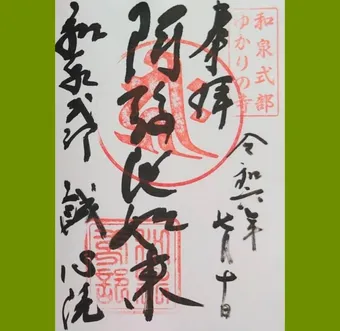 和泉式部
ゆかりの寺
奉拝
令和六年七月十日
阿弥陀如来
和泉式部 誠心院